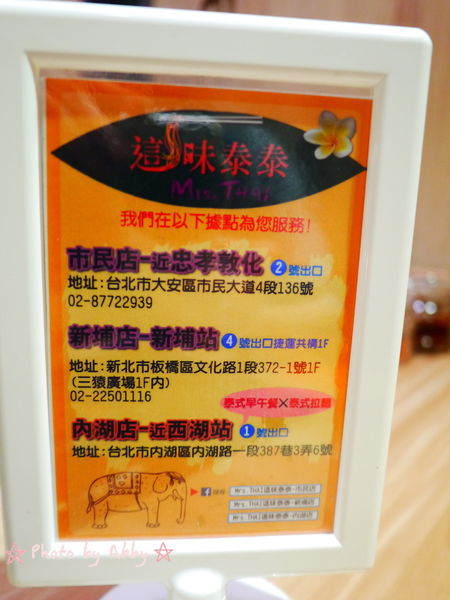 這味泰泰
Mrs. THAI
我們在以下據點為您服務!
市民店-近忠孝敦化 2 號出口
地址:台北市大安區市民大道4段136號
02-87722939
新埔店-新埔站 4 號出口捷運共構1F
地址:新北市板橋區文化路1段372-1號1F
(三猿廣場1F內)
02-22501116
泰式早午餐X泰式拉麵
內湖店-近西湖站 1 號出口
地址:台北市內湖區內湖路一段387巷3弄6號
f 搜尋
Mrs.THAI這味泰泰-市民店
Mrs.THAI這味泰泰-新埔店
Mrs.THAI這味泰泰-內湖店
☆ Photo by Abby ☆